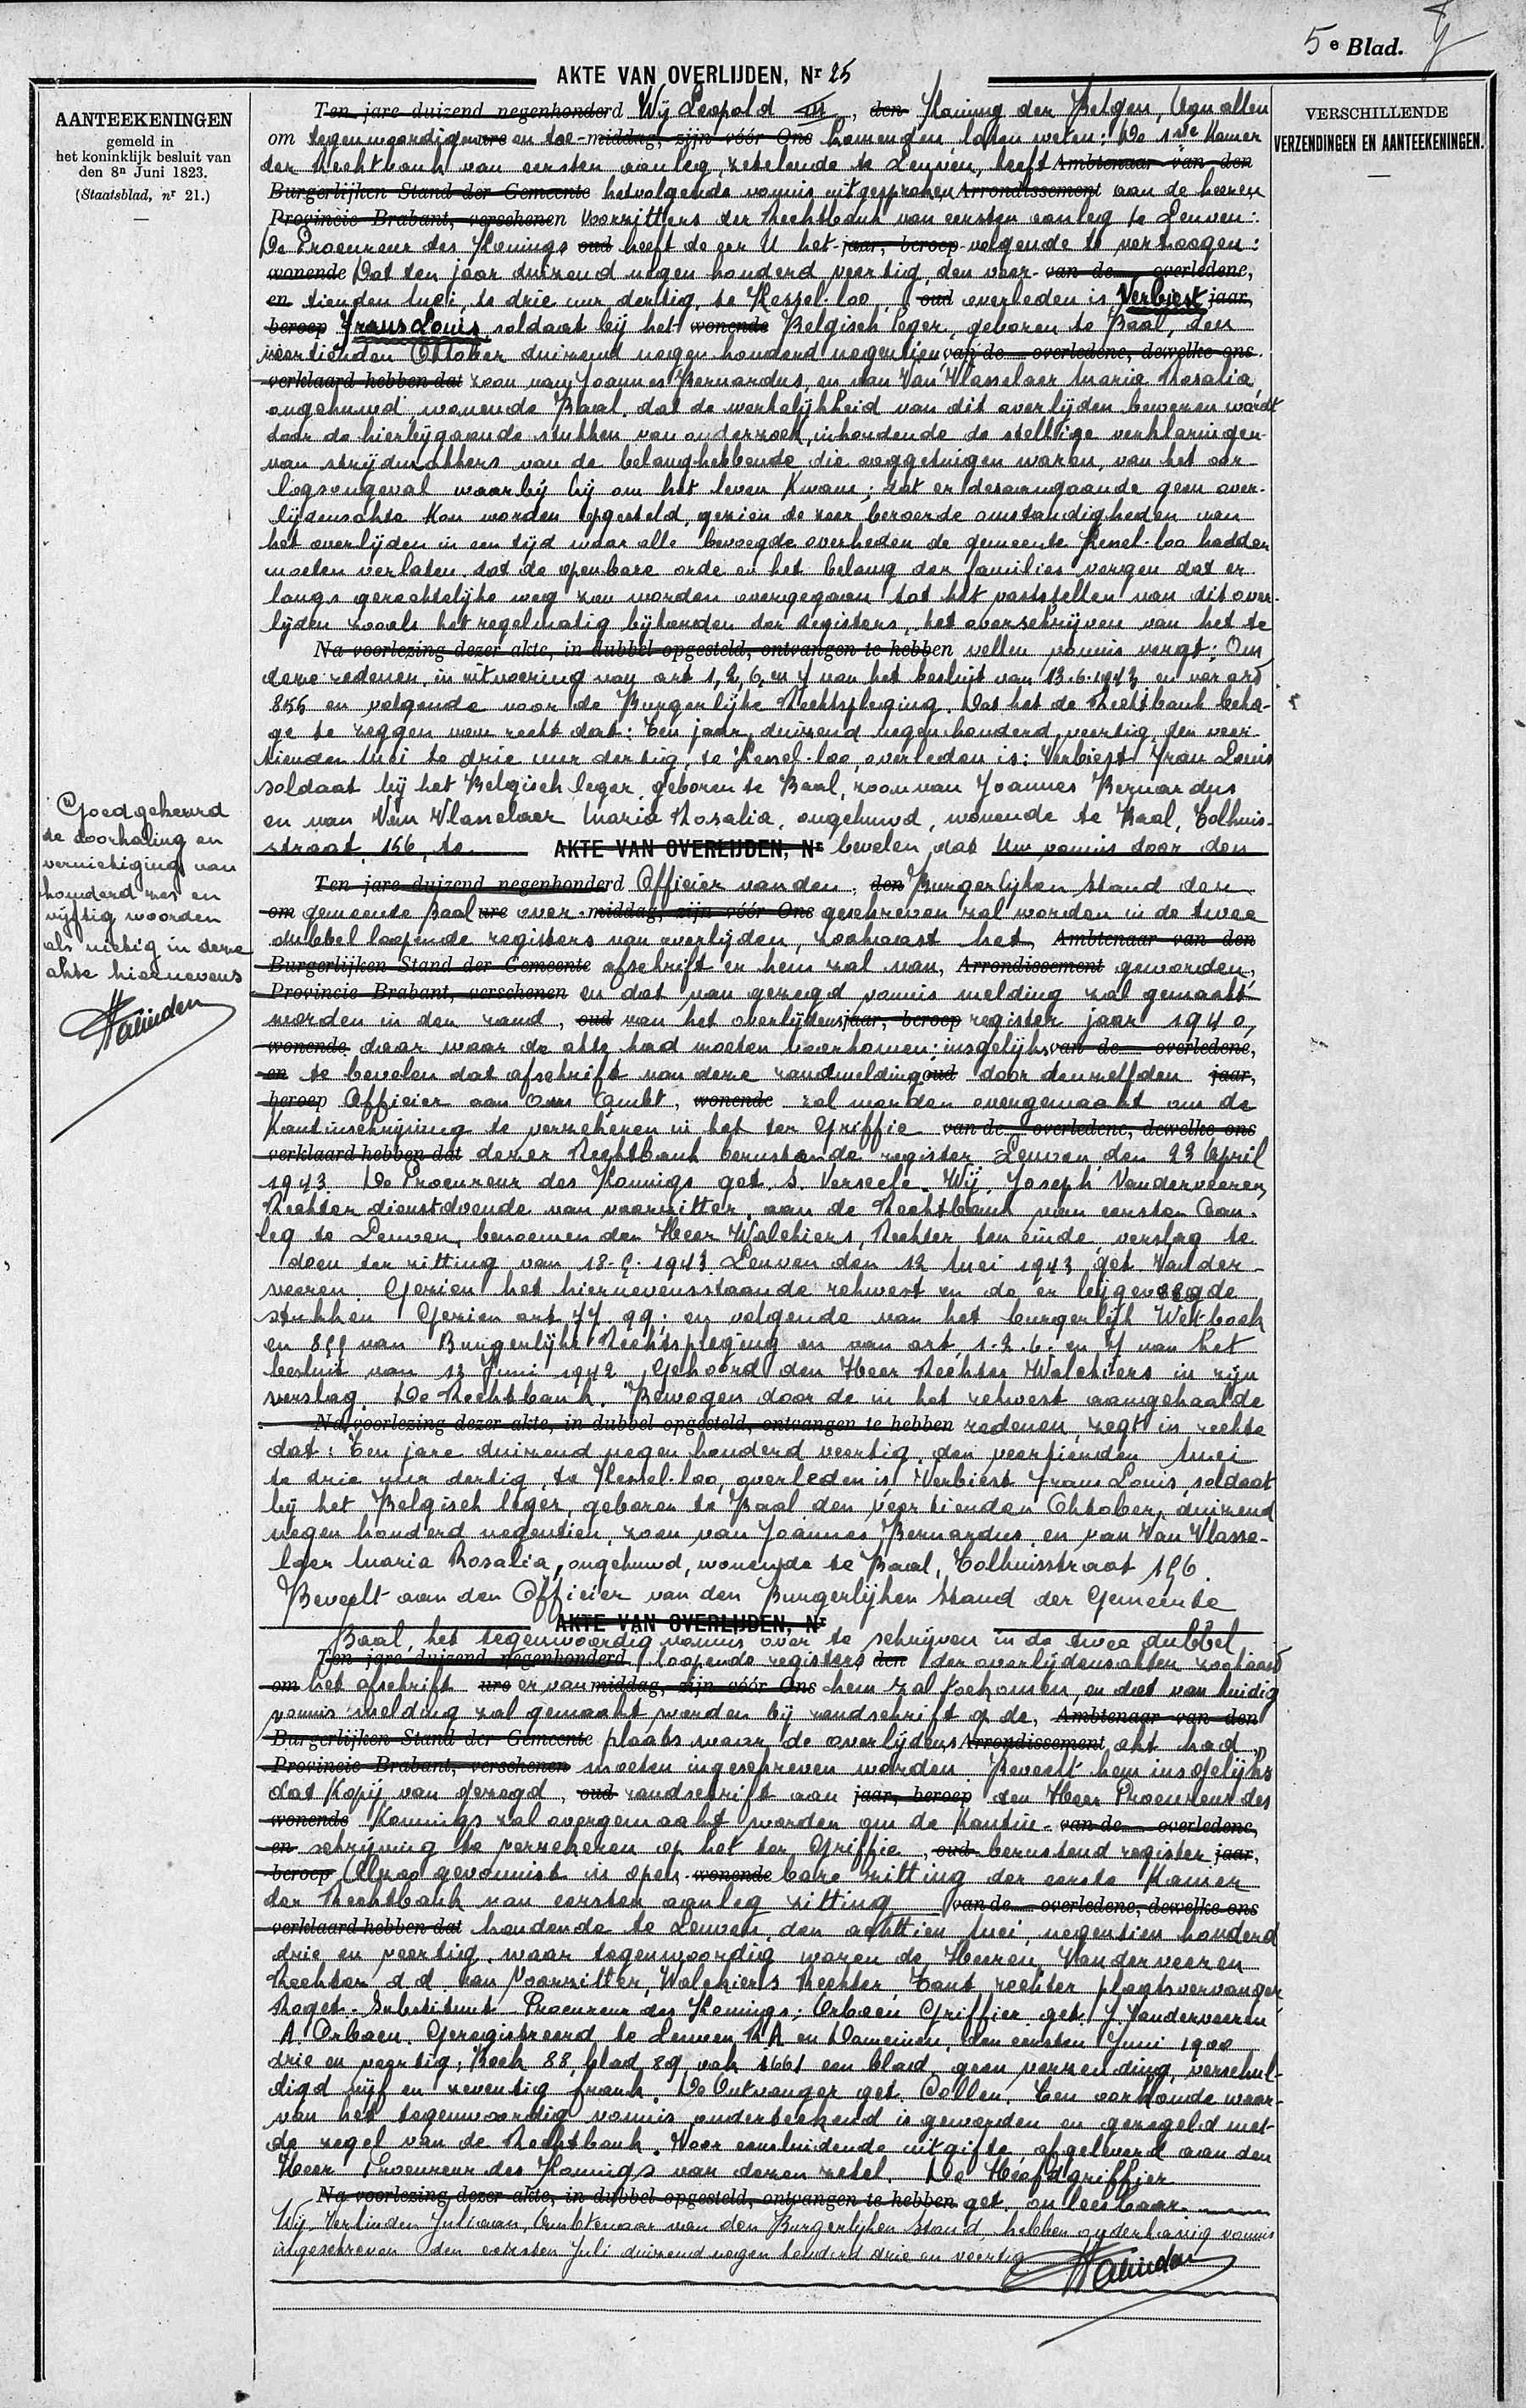 5e Blad.
AKTE VAN OVERLIJDEN, Nr 25
AANTEEKENINGEN
gemeld in
het koninklijk besluit van
den 8n Juni 1823.
(Staatsblad, nr 21.)
VERSCHILLENDE
VERZENDINGEN EN AANTEEKENINGEN.
Ten jare duizend negenhonderd Wij Leopold III, den Koning der Belgen, Aan allen
om tegenwoordigen ure en toe-middag, zijn vóór Ons komenden laten weten: De 1ste Kamer
der Rechtbank van eersten aanleg, zetelende te Leuven, heeft Ambtenaar van den
Burgerlijken Stand der Gemeente hetvolgende vonnis uitgesproken Arrondissement aan de heeren
Provincie Brabant, verschenen Voorzitters der Rechtbank van eersten aanleg te Leuven:
De Procureur des Konings oud heeft de eer U het-jaar, beroep-volgende te vertoogen:
wonende Dat ten jaar duizend negen honderd veertig, den veer- van de overledene,
en tienden Mei te drie uur dertig, te Kessel-loo, oud overleden is Verbiest jaar,
beroep Frans Louis soldaat bij het wonende Belgisch leger, geboren te Baal, den
veertienden Oktober duizend negen honderd negentien, van de overledene, dewelke ons
verklaard hebben dat zoon van Joannes Bernardus, en van Van Vlasselaer Maria Rosalia,
ongehuwd, wonende Baal, dat de werkelijkheid van dit overlijden bewezen wordt
door de hierbijgaande stukken van onderzoek, inhoudende de stellige verklaringen
van strijdmakkers van de belanghebbende die ooggetuigen waren, van het oor-
logsongeval waarbij hij om het leven kwam; dat er desaangaande geen over-
lijdensakte kon worden opgesteld, gezien de zeer beroerde omstandigheden van
het overlijden in een tijd waar alle bevoegde overheden de gemeente Kessel-loo hadden
moeten verlaten, dat de openbare orde en het belang der families vergen dat er
langs gerechtelijke weg zou worden overgegaan tot het vaststellen van dit over-
lijden zooals het regelmatig bijhouden der registers, het overschrijven van het te
Na voorlezing dezer akte, in dubbel opgesteld, ontvangen te hebben vellen vonnis vergt; Om
deze redenen, in uitvoering van art 1, 2, 6, en 7 van het besluit van 13.6.1942 en van art
855 en volgende voor de Burgerlijke Rechtspleging. Dat het de Rechtbank beha-
ge te zeggen voor recht dat: Ten jaar, duizend negen honderd, veertig, den veer-
tienden Mei te drie uur dertig, te Kessel-loo, overleden is: Verbiest Frans Louis
soldaat bij het Belgisch leger, geboren te Baal, zoon van Joannes Bernardus
en van Van Vlasselaer Maria Rosalia, ongehuwd, wonende te Baal, Tolhuis-
straat, 156, te
AKTE VAN OVERLIJDEN, Nr bevelen dat Uw vonnis door den
Ten jare duizend negenhonderd Officier van den, den Burgerlijken Stand der
om gemeente Baal ure over-middag, zijn vóór Ons geschreven zal worden in de twee
dubbel loopende registers van overlijden, zoohaast het, Ambtenaar van den
Burgerlijken Stand der Gemeente afschrift er hem zal van, Arrondissement geworden,
Provincie Brabant, verschenen en dat van gezegd vonnis melding zal gemaakt
worden in den rand, oud van het overlijdens jaar, beroep register jaar 1940,
wonende daar waar de akte had moeten voorkomen; insgelijks van de overledene,
en te bevelen dat afschrift van deze randmelding oud door denzelfden jaar,
beroep Officier aan Ons Ambt, wonende zal worden overgemaakt om de
Kantinschrijving te verzekeren in het ter Griffie van de overledene, dewelke ons
verklaard hebben dat dezer Rechtbank berustende register Leuven, den 23 April
1943. De Procureur des Konings get. S. Verseele. Wij, Joseph Vanderveeren
Rechter dienstdoende van voorzitter, aan de Rechtbank van eersten Aan-
leg te Leuven, benoemen den Heer Walchiers, Rechter ten einde verslag te
doen ter zitting van 18-5-1943. Leuven den 12 Mei 1943 get. Vander-
veeren. Gezien het hiernevensstaande rekwest en de er bijgevoegde
stukken Gezien art. 77. 99. en volgende van het burgerlijk Wetboek
en 855 van Burgerlijke Rechtspleging en van art. 1-2-6. en 7 van het
besluit van 13 Juni 1942 Gehoord den Heer Rechter Walchiers in zijn
verslag. De Rechtbank. Bewogen door de in het rekwest aangehaalde
Na voorlezing dezer akte, in dubbel opgesteld, ontvangen te hebben redenen, zegt in rechte
dat: Ten jare duizend negen honderd veertig, den veertienden Mei
te drie uur dertig, te Kessel-loo, overleden is Verbiest Frans Louis, soldaat
bij het Belgisch leger, geboren te Baal den veertienden Oktober, duizend
negen honderd negentien, zoon van Joannes Bernardus, en van Van Vlasse-
laer Maria Rosalia, ongehuwd, wonende te Baal, Tolhuisstraat 156.
Beveelt aan den Officier van den Burgerlijken Stand der Gemeente
AKTE VAN OVERLIJDEN, Nr
Baal, het tegenwoordig vonnis over te schrijven in de twee dubbel
Ten jare duizend negenhonderd loopende registers den der overlijdensakten zoohaast
om het afschrift ure er van middag, zijn vóór Ons hem zal toekomen, en dat van huidig
vonnis melding zal gemaakt worden bij randschrift op de, Ambtenaar van den
Burgerlijken Stand der Gemeente plaats waar de overlijdens Arrondissement akt had
Provincie Brabant, verschenen moeten ingeschreven worden. Beveelt hem insgelijks
dat Kopij van gezegd, oud randschrift aan jaar, beroep den Heer Procureur des
wonende Konings zal overgemaakt worden om de Kantin- van de overledene,
en schrijving te verzekeren op het ter Griffie, oud berustend register jaar,
beroep Alzoo gevonnist in open- wonende bare zitting der eerste Kamer
der Rechtbank van eersten aanleg zitting van de overledene, dewelke ons
verklaard hebben dat houdende te Leuven, den achttien Mei, negentien honderd
drie en veertig, waar tegenwoordig waren de Heeren Vanderveeren
Rechter d.d. van Voorzitter, Walchiers Rechter, Tant rechter plaatsvervanger,
Roget. Substituut Procureur des Konings; Orbaen Griffier get. J. Vanderveeren
A. Orbaen. Geregistreerd te Leuven R.A. en Domeinen, den eersten Juni 1900
drie en veertig; Boek 88, blad 89, vak 1661 een blad, geen verzending, verschul-
digd vijf en zeventig frank. De Ontvanger get. Collen. Een oorkonde waar-
van het tegenwoordig vonnis onderteekend is geworden en gezegeld met
de zegel van de Rechtbank. Voor eensluidende uitgifte, afgeleverd aan den
Heer Procureur des Konings van dezen zetel. De Hoofdgriffier
Na voorlezing dezer akte, in dubbel opgesteld, ontvangen te hebben get. onleesbaar.
Wij, Verlinden Juliaan, Ambtenaar van den Burgerlijken Stand hebben onderhavig vonnis
ingeschreven den eersten Juli duizend negen honderd drie en veertig
Goedgekeurd
de doorhaling en
vernietiging van
honderd zes en
vijftig woorden
als nietig in deze
akte hiernevens